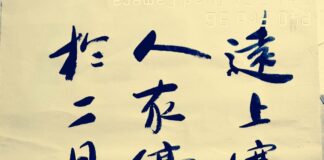 遠上寒
人家停
於二月